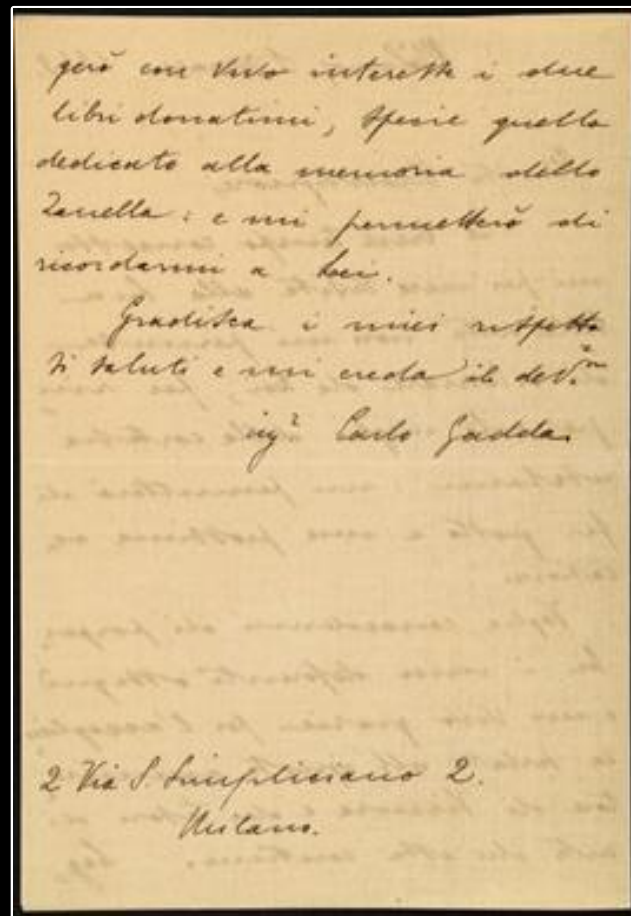 gerò con vivo interesse i due
libri donatimi, specie quello
dedicato alla memoria dello
Zanella: e mi permetterò di
ricordarmi a Lei.
Gradisca i miei rispetto
si saluti e mi creda il dev.mo
ing.r Carlo Gadda.
2 Via S. Simpliciano 2.
Milano.